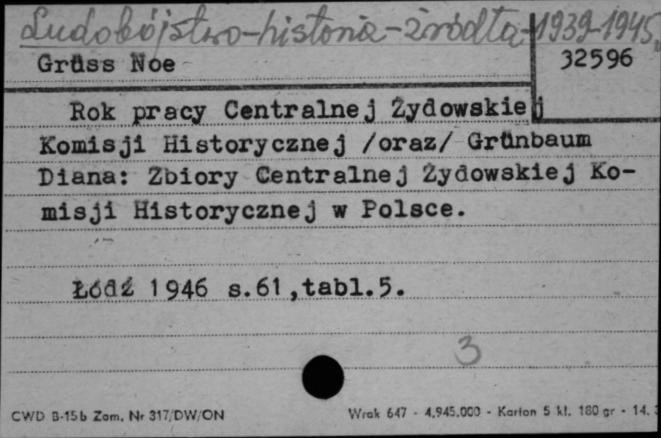 Ludobójstwo-historia-źródła-1939-1945,
Grüss Noe
32596
Rok pracy Centralnej Żydowskiej
Komisji Historycznej /oraz/ Grünbaum
Diana: Zbiory Centralnej Żydowskiej Ko-
misji Historycznej w Polsce.
Łódź 1946 s.61,tabl.5.
3
CWD B-15b Zam. Nr 317/DW/ON
Wrak 647 - 4.945.000 - Karton 5 kl. 180 gr - 14.